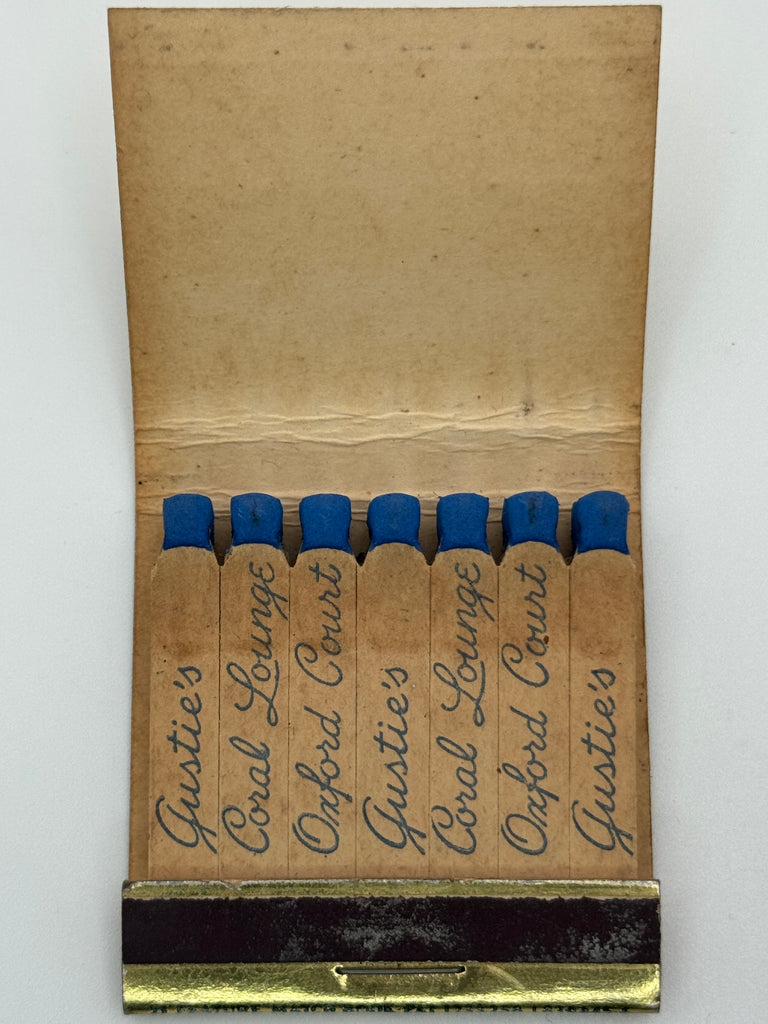 Gustie's
Coral Lounge
Oxford Court
Gustie's
Coral Lounge
Oxford Court
Gustie's